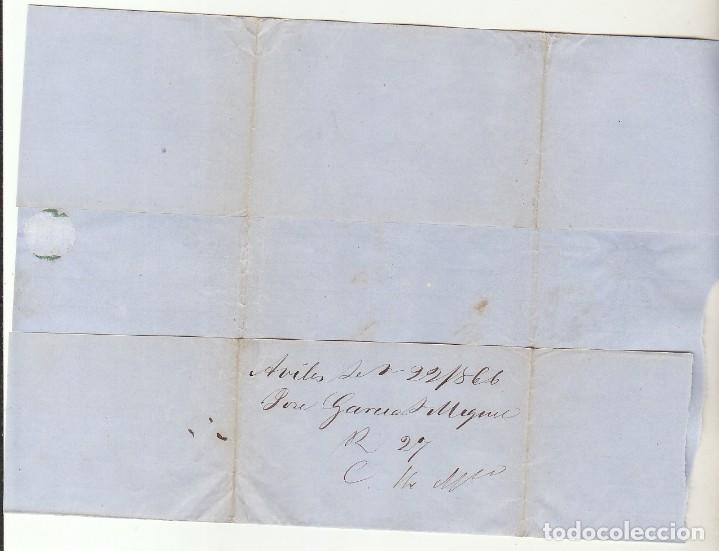 Aviles Set.e 22/866
Jose Garcia S Miguel
R 27
C.
todocoleccion.net